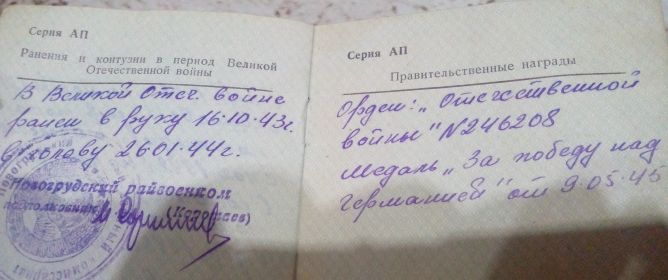 Серия АП
Ранения и контузии в период Великой
Отечественной войны
В Великой Отеч. войне
ранен в руку 16.10.43г.
в голову 26.01.44г.
Новогрудский райвоенком
подполковник
Серия АП
Правительственные награды
Орден: „Отечественной
войны" N246208
медаль „За победу над
Германией" от 9.05.45